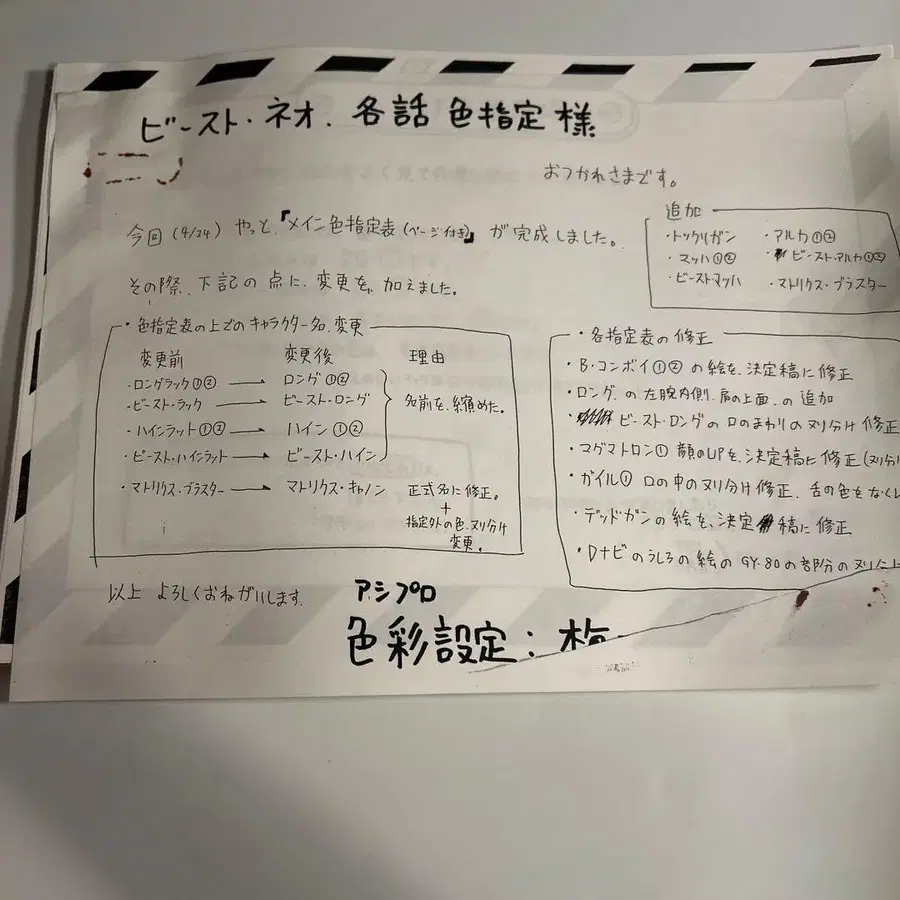 ビースト・ネオ. 各話 色指定 様
おつかれさまです。
今回 (4/24) やっと、『メイン色指定表(ページ付き)』が 完成しました。
その際、下記の点に、変更を、加えました。
追加
・トックリガン
・マッハ①②
・ビーストマッハ
・アルカ①②
・ビースト・アルカ①②
・マトリクス・ブラスター
・色指定表の上でのキャラクター名、変更
変更前 変更後 理由
・ロングラック①② → ロング ①②
・ビースト・ラック → ビースト・ロング
・ハインラット①② → ハイン ①②
・ビースト・ハインラット → ビースト・ハイン
名前を、縮めた。
・マトリクス・ブラスター → マトリクス・キャノン 正式名に修正。
+
指定外の色、ヌリ分け
変更。
・各指定表の修正
・B・コンボイ①②の絵を、決定稿に修正
・ロング、の左腕内側、肩の上面、の追加
・ビースト・ロングの口のまわりのヌリ分け修正
・マグマトロン① 顔のUPを、決定稿に修正(ヌリ分
・ガイル① 口の中のヌリ分け修正、舌の色をなくし
・デッドガンの絵を、決定稿に修正
・Dナビのうしろの絵のGY-80の部分のヌリ分け
以上 よろしくおねがいします。
アシプロ
色彩設定: 梅